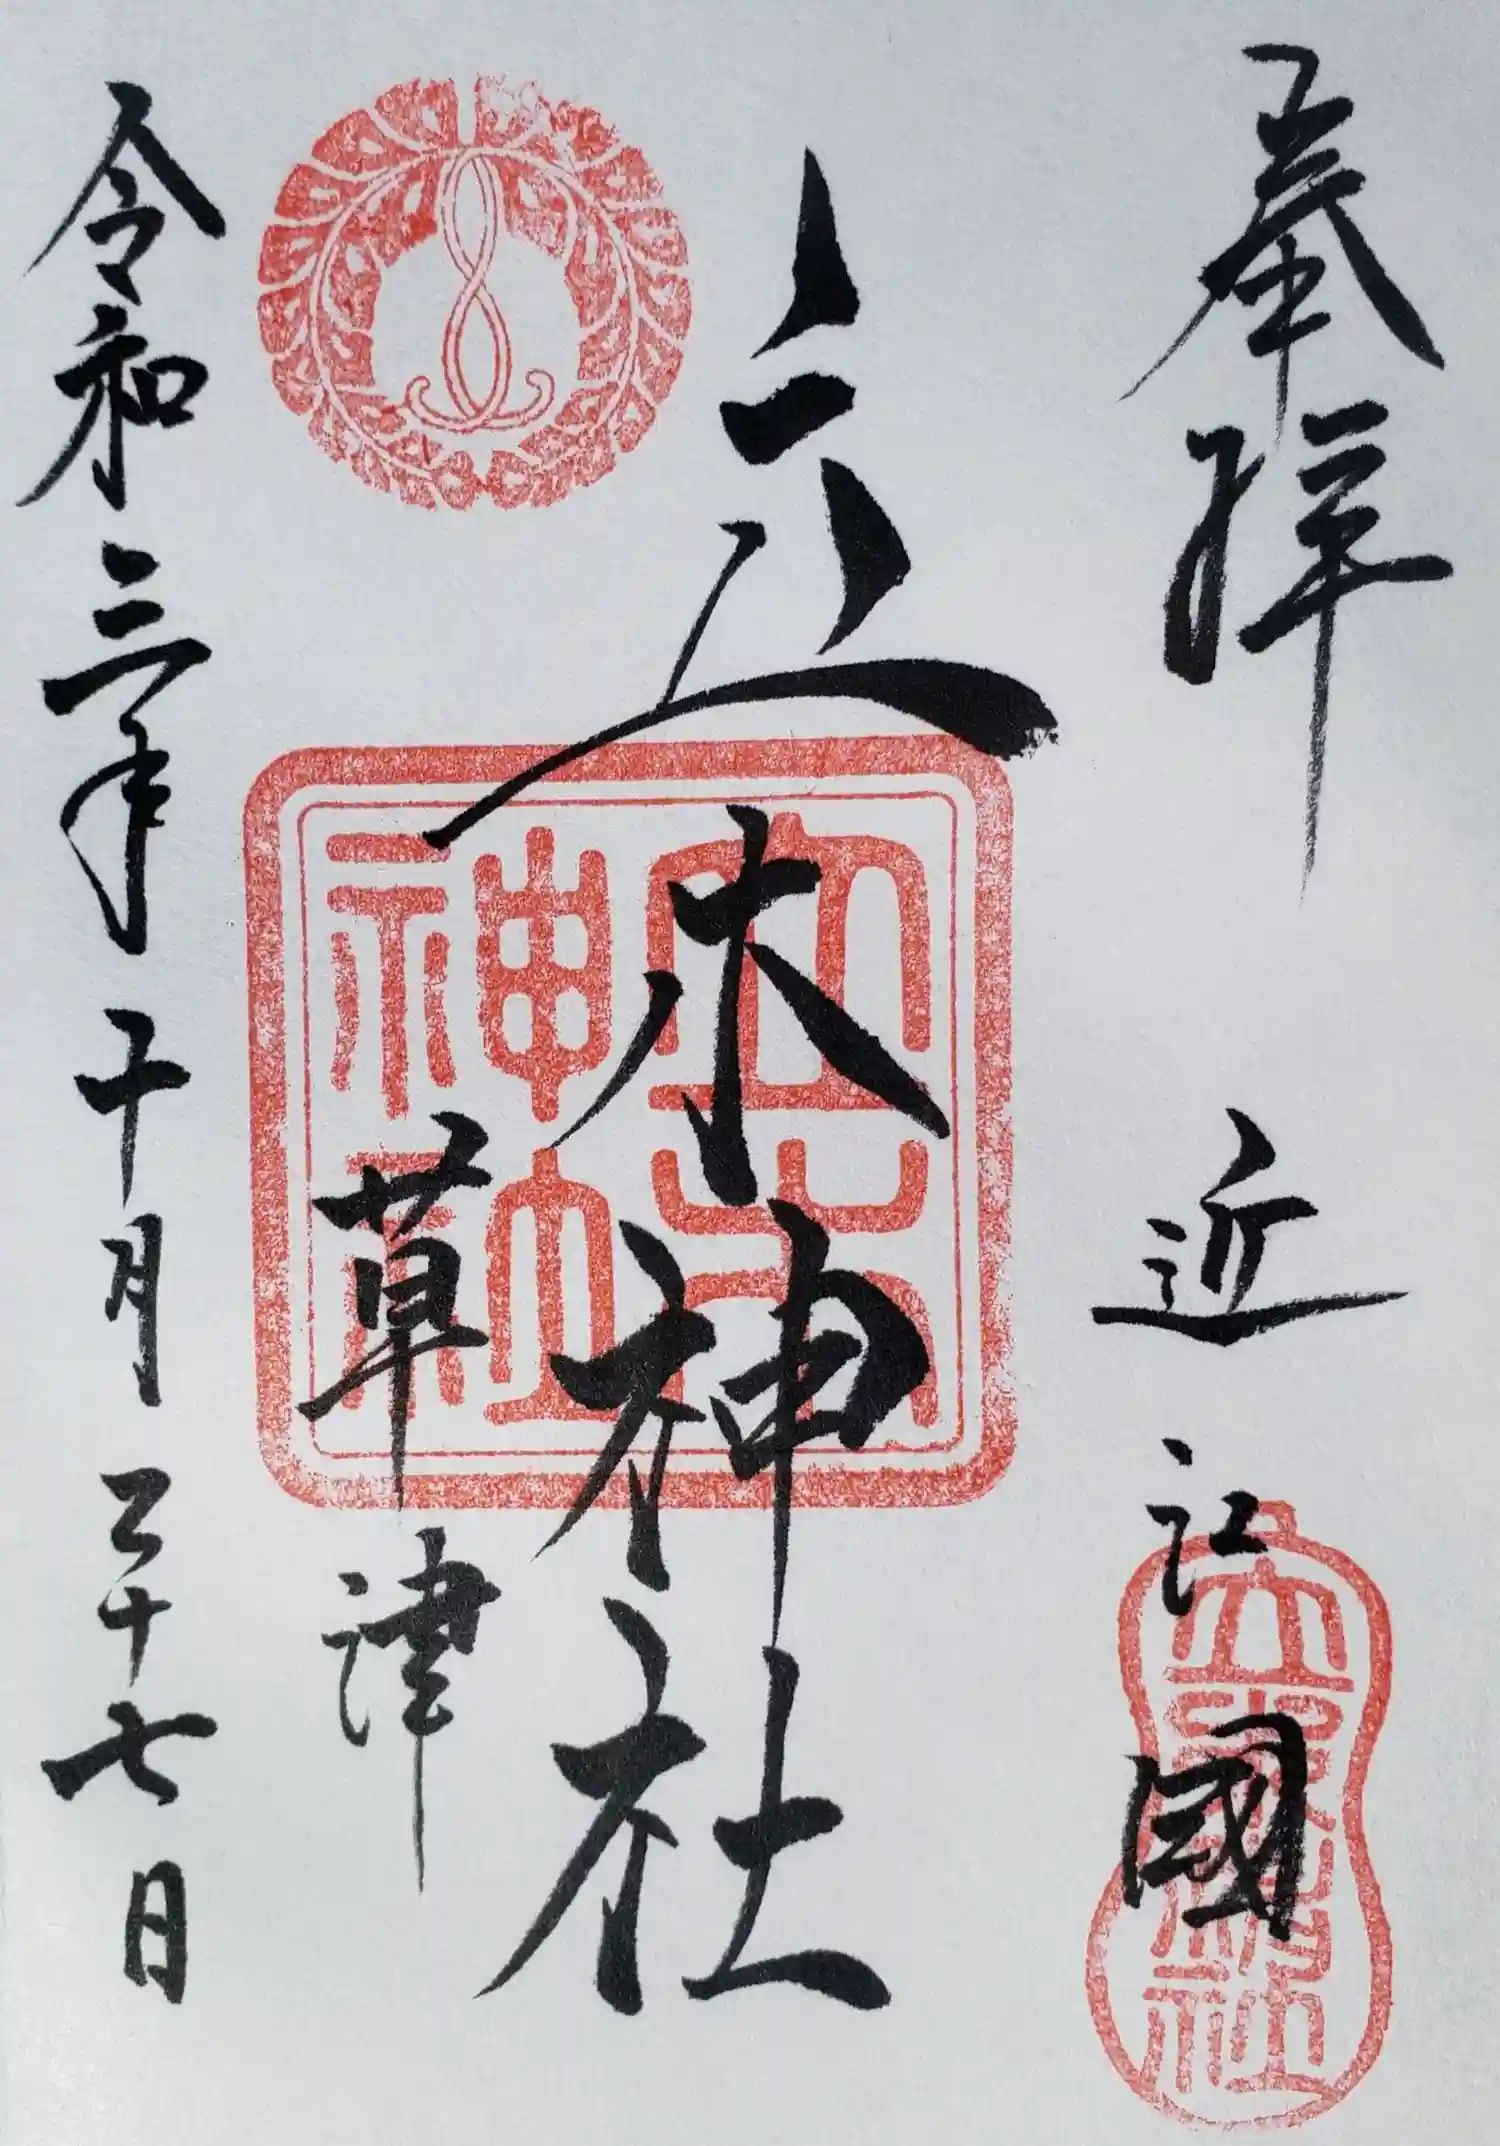 奉拝
近江國
立木神社
立木神社
草津
令和三年十月二十七日